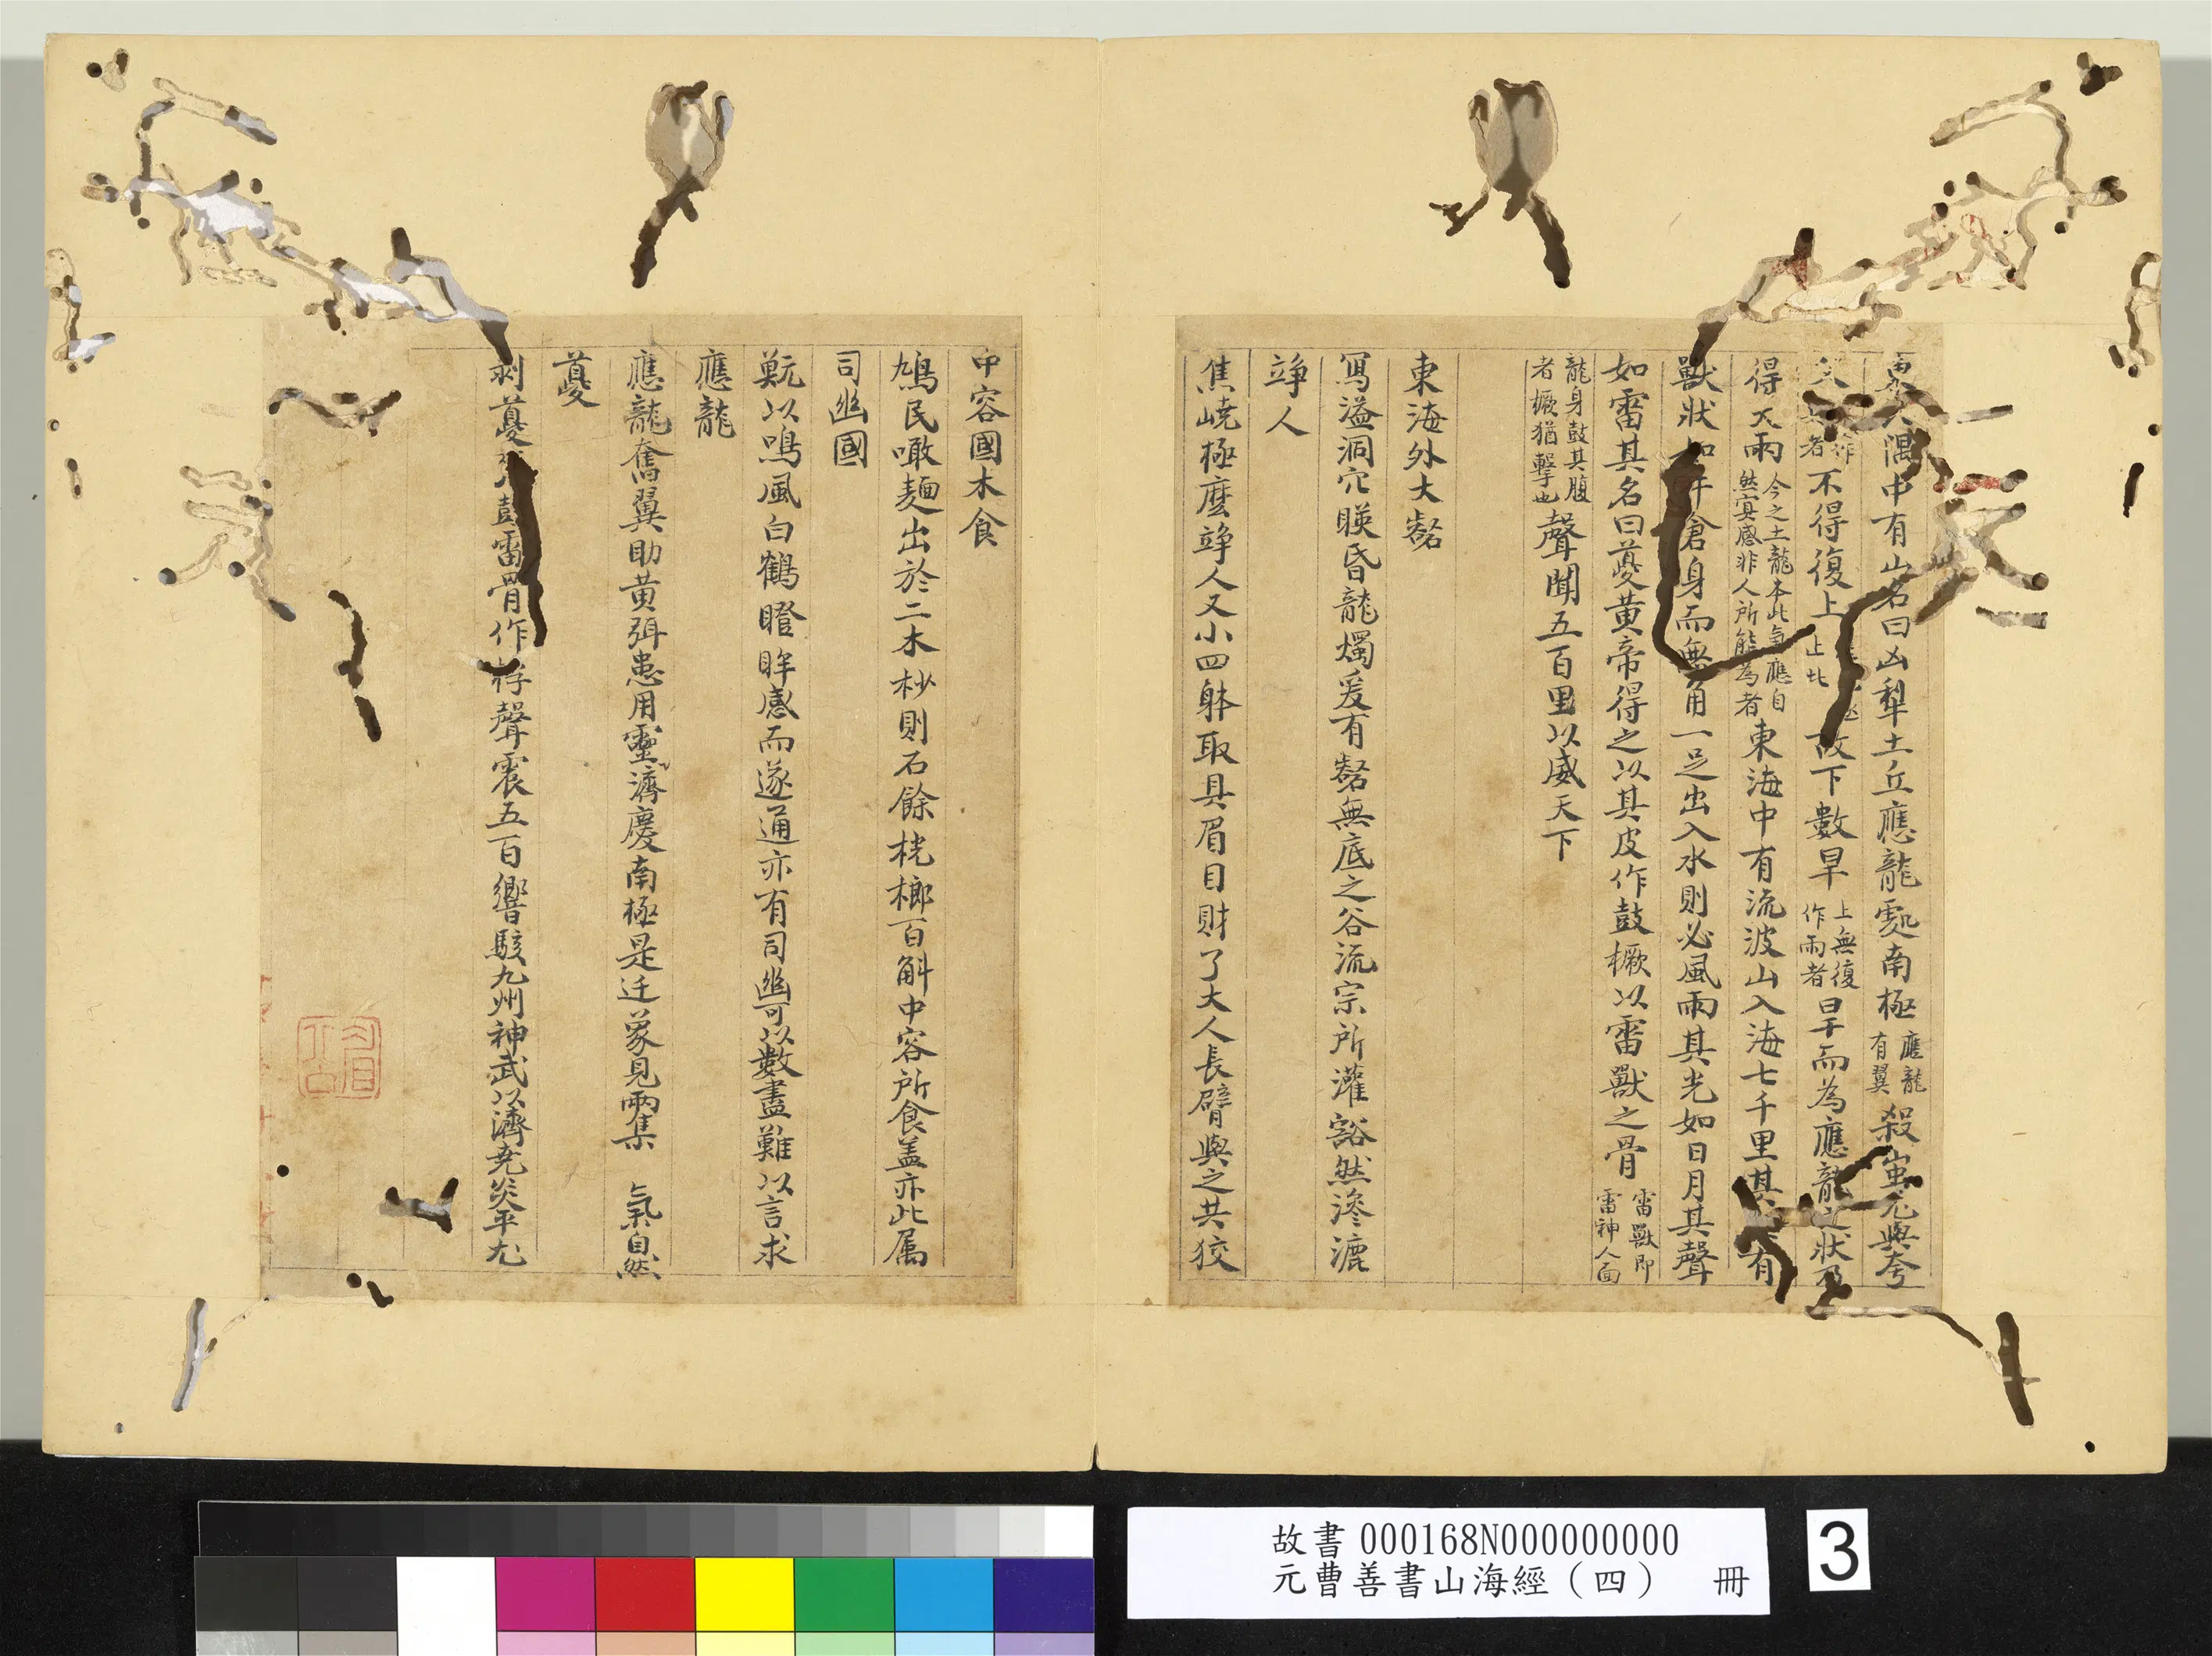 隅中有山名曰凶犁土丘應龍處南極應龍有翼殺蚩尤與夸
者不得復上故下數旱上無復作雨者旱而為應龍之狀乃
得大雨今之土龍本此氣應自然冥感非人所能為者東海中有流波山入海七千里其有
獸狀如牛倉身而無角一足出入水則必風雨其光如日月其聲
如雷其名曰夔黃帝得之以其皮作鼓橛以雷獸之骨雷獸即雷神人面
龍身鼓其腹者橛猶擊也聲聞五百里以威天下
東海外大壑
寫溢洞穴暎昏龍燭爰有壑無底之谷流宗所灌豁然滲漉
竫人
焦嶢極麼竫人又小四躰取具眉目財了大人長臂與之共狡
中容國木食
鳩民噉麵出於二木杪則石餘桄榔百斛中容所食盖亦此属
司幽國
甉以鳴風白鶴瞪眸感而遂通亦有司幽可以數盡難以言求
應龍
應龍奮翼助黄弭患用靈濟慶南極是迁象見兩集 氣自然
夔
剥夔雷骨作桴聲震五百響駭九州神武以濟尭炎平尤
故書000168N000000000
元曹善書山海經（四） 冊
3